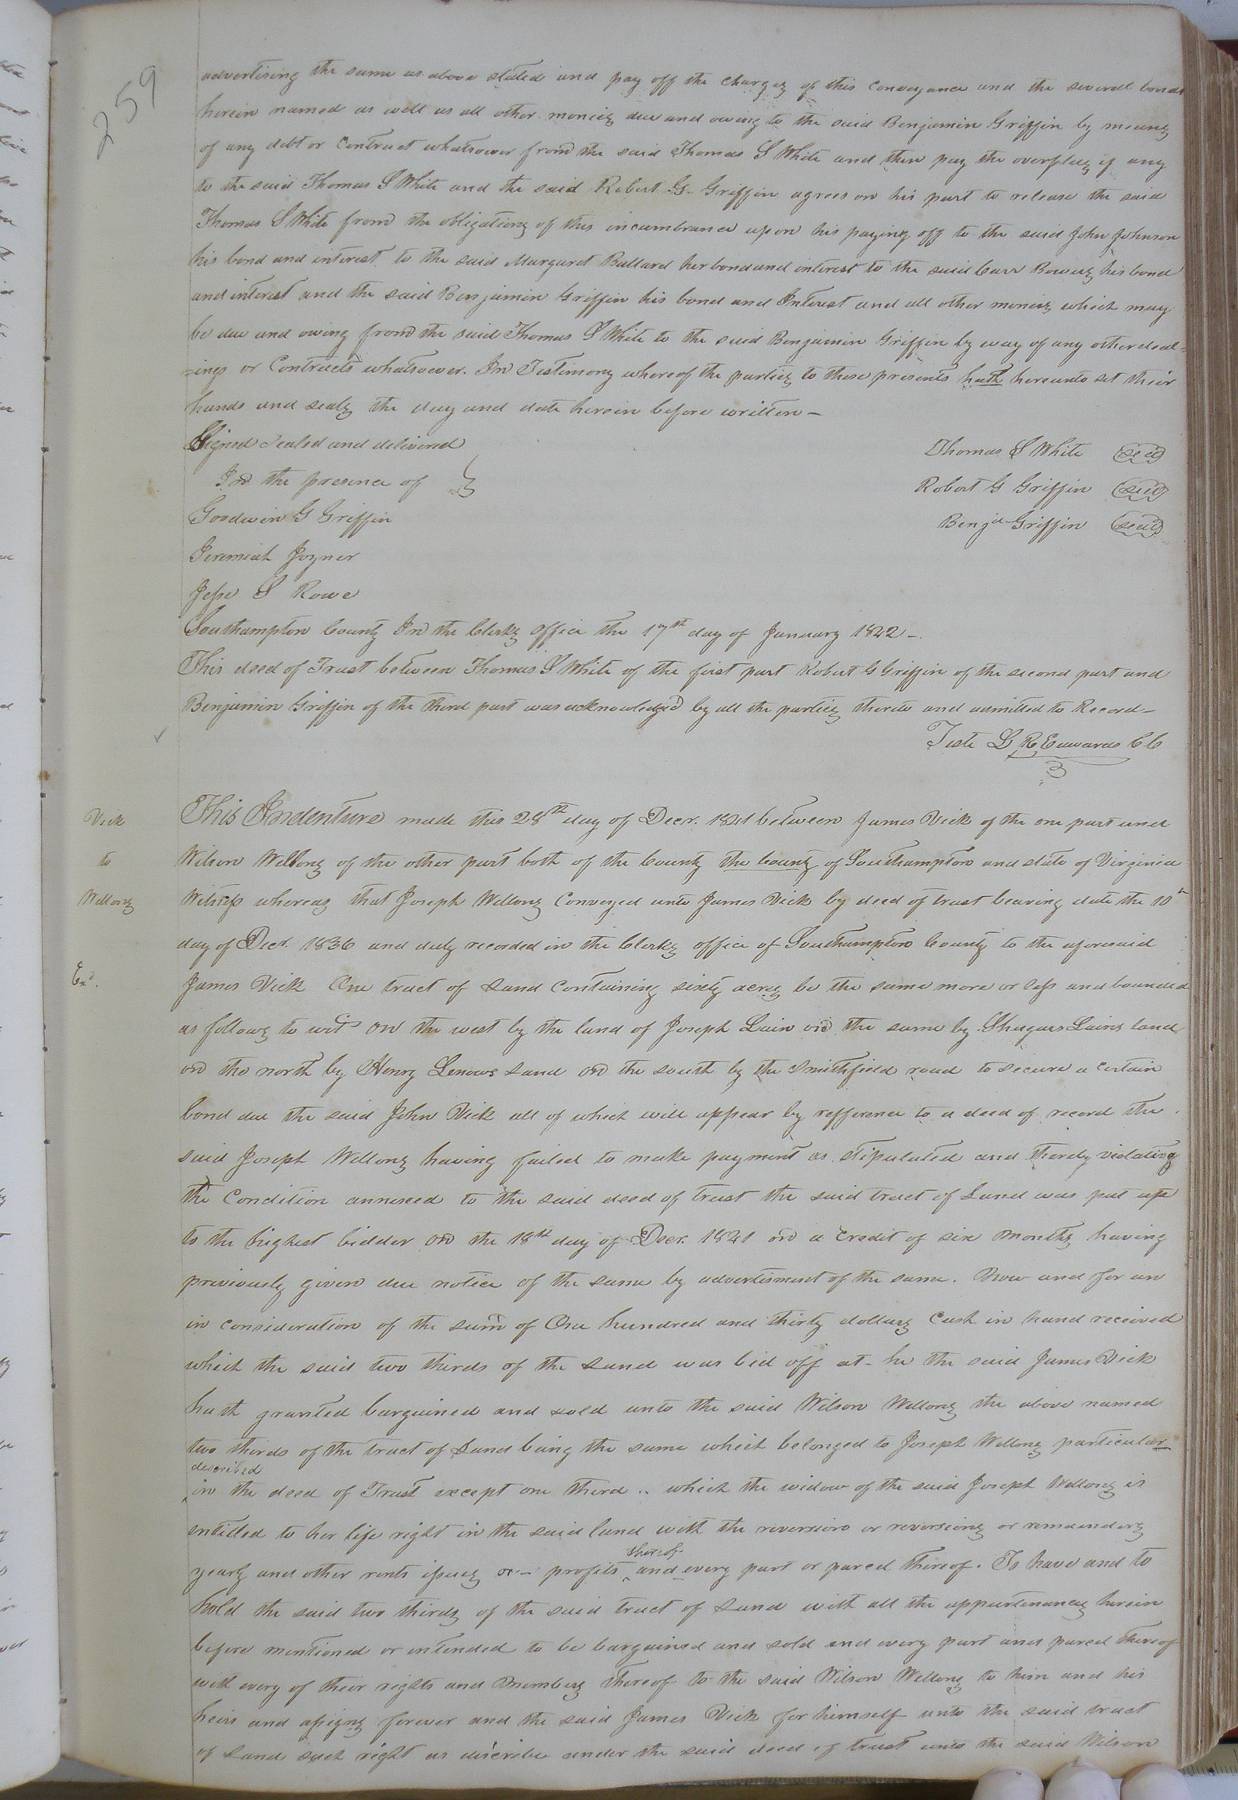 259
advertising the same as above stated and pay off the charges of this conveyance and the several bonds
herein named as well as all other monies due and owing to the said Benjamin Griffin by means
of any debt or Contract whatsoever from the said Thomas S White and then pay the overplus if any
to the said Thomas S White and the said Robert G. Griffin agrees on his part to release the said
Thomas S White from the obligations of this incumbrance upon his paying off to the said John Johnson
his bond and interest to the said Margaret Ballard her bond and interest to the said Carr Bowers his bond
and interest and the said Benjamin Griffin his bond and Interest and all other monies which may
be due and owing from the said Thomas S White to the said Benjamin Griffin by way of any other deal-
-ings or Contracts whatsoever. In Testimony whereof the parties to these presents hath hereunto set their
hands and seals the day and date herein before written -
Signed Sealed and delivered
In the presence of
Thomas S White (seal)
Robert G Griffin (seal)
Goodwin G Griffin
Benja Griffin (seal)
Jeremiah Joyner
Jesse S Rowe
Southampton County In the Clerks Office the 17th day of January 1842 -
This deed of Trust between Thomas S White of the first part Robert G Griffin of the second part and
Benjamin Griffin of the third part was acknowledged by all the parties thereto and admitted to Record -
Teste L R Edwards CC
Vick
to
Wellons
Exd.
This Indenture made this 28th day of Decr. 1841 between James Vick of the one part and
Wilson Wellons of the other part both of the County the County of Southampton and state of Virginia
Witness whereas that Joseph Wellons Conveyed unto James Vick by deed of trust bearing date the 10th
day of Decr. 1836 and duly recorded in the Clerks office of Southampton County to the aforesaid
James Vick One tract of Land Containing sixty acres be the same more or less and bounded
as follows to wit on the west by the land of Joseph Lain on the same by Shugars Lains land
on the north by Henry Lenows Land on the south by the Smithfield road to secure a certain
bond due the said John Vick all of which will appear by refference to a deed of record the
said Joseph Wellons having failed to make payment as stipulated and thereby violating
the Condition annexed to the said deed of trust the said tract of Land was put up
to the highest bidder on the 18th day of Decr. 1841 on a credit of six months having
previously given due notice of the same by advertisment of the same. Now and for an
in consideration of the sum of One hundred and thirty dollars Cash in hand received
which the said two thirds of the Land was bid off at - he the said James Vick
hath granted bargained and sold unto the said Wilson Wellons the above named
two thirds of the tract of Land being the same which belonged to Joseph Wellons particular
described
in the deed of Trust except one third .. which the widow of the said Joseph Wellons is
entitled to her life right in the said land with the reversion or reversions or remainders
thereof
yearly and other rents issues or - profits and every part or parcel thereof. To have and to
hold the said two thirds of the said tract of Land with all the appurtenances herein
before mentioned or intended to be bargained and sold and every part and parcel thereof
with every of their rights and Members thereof to the said Wilson Wellons to him and his
heirs and assigns forever and the said James Vick for himself unto the said tract
of Land such right as discribe under the said deed of trust unto the said Wilson